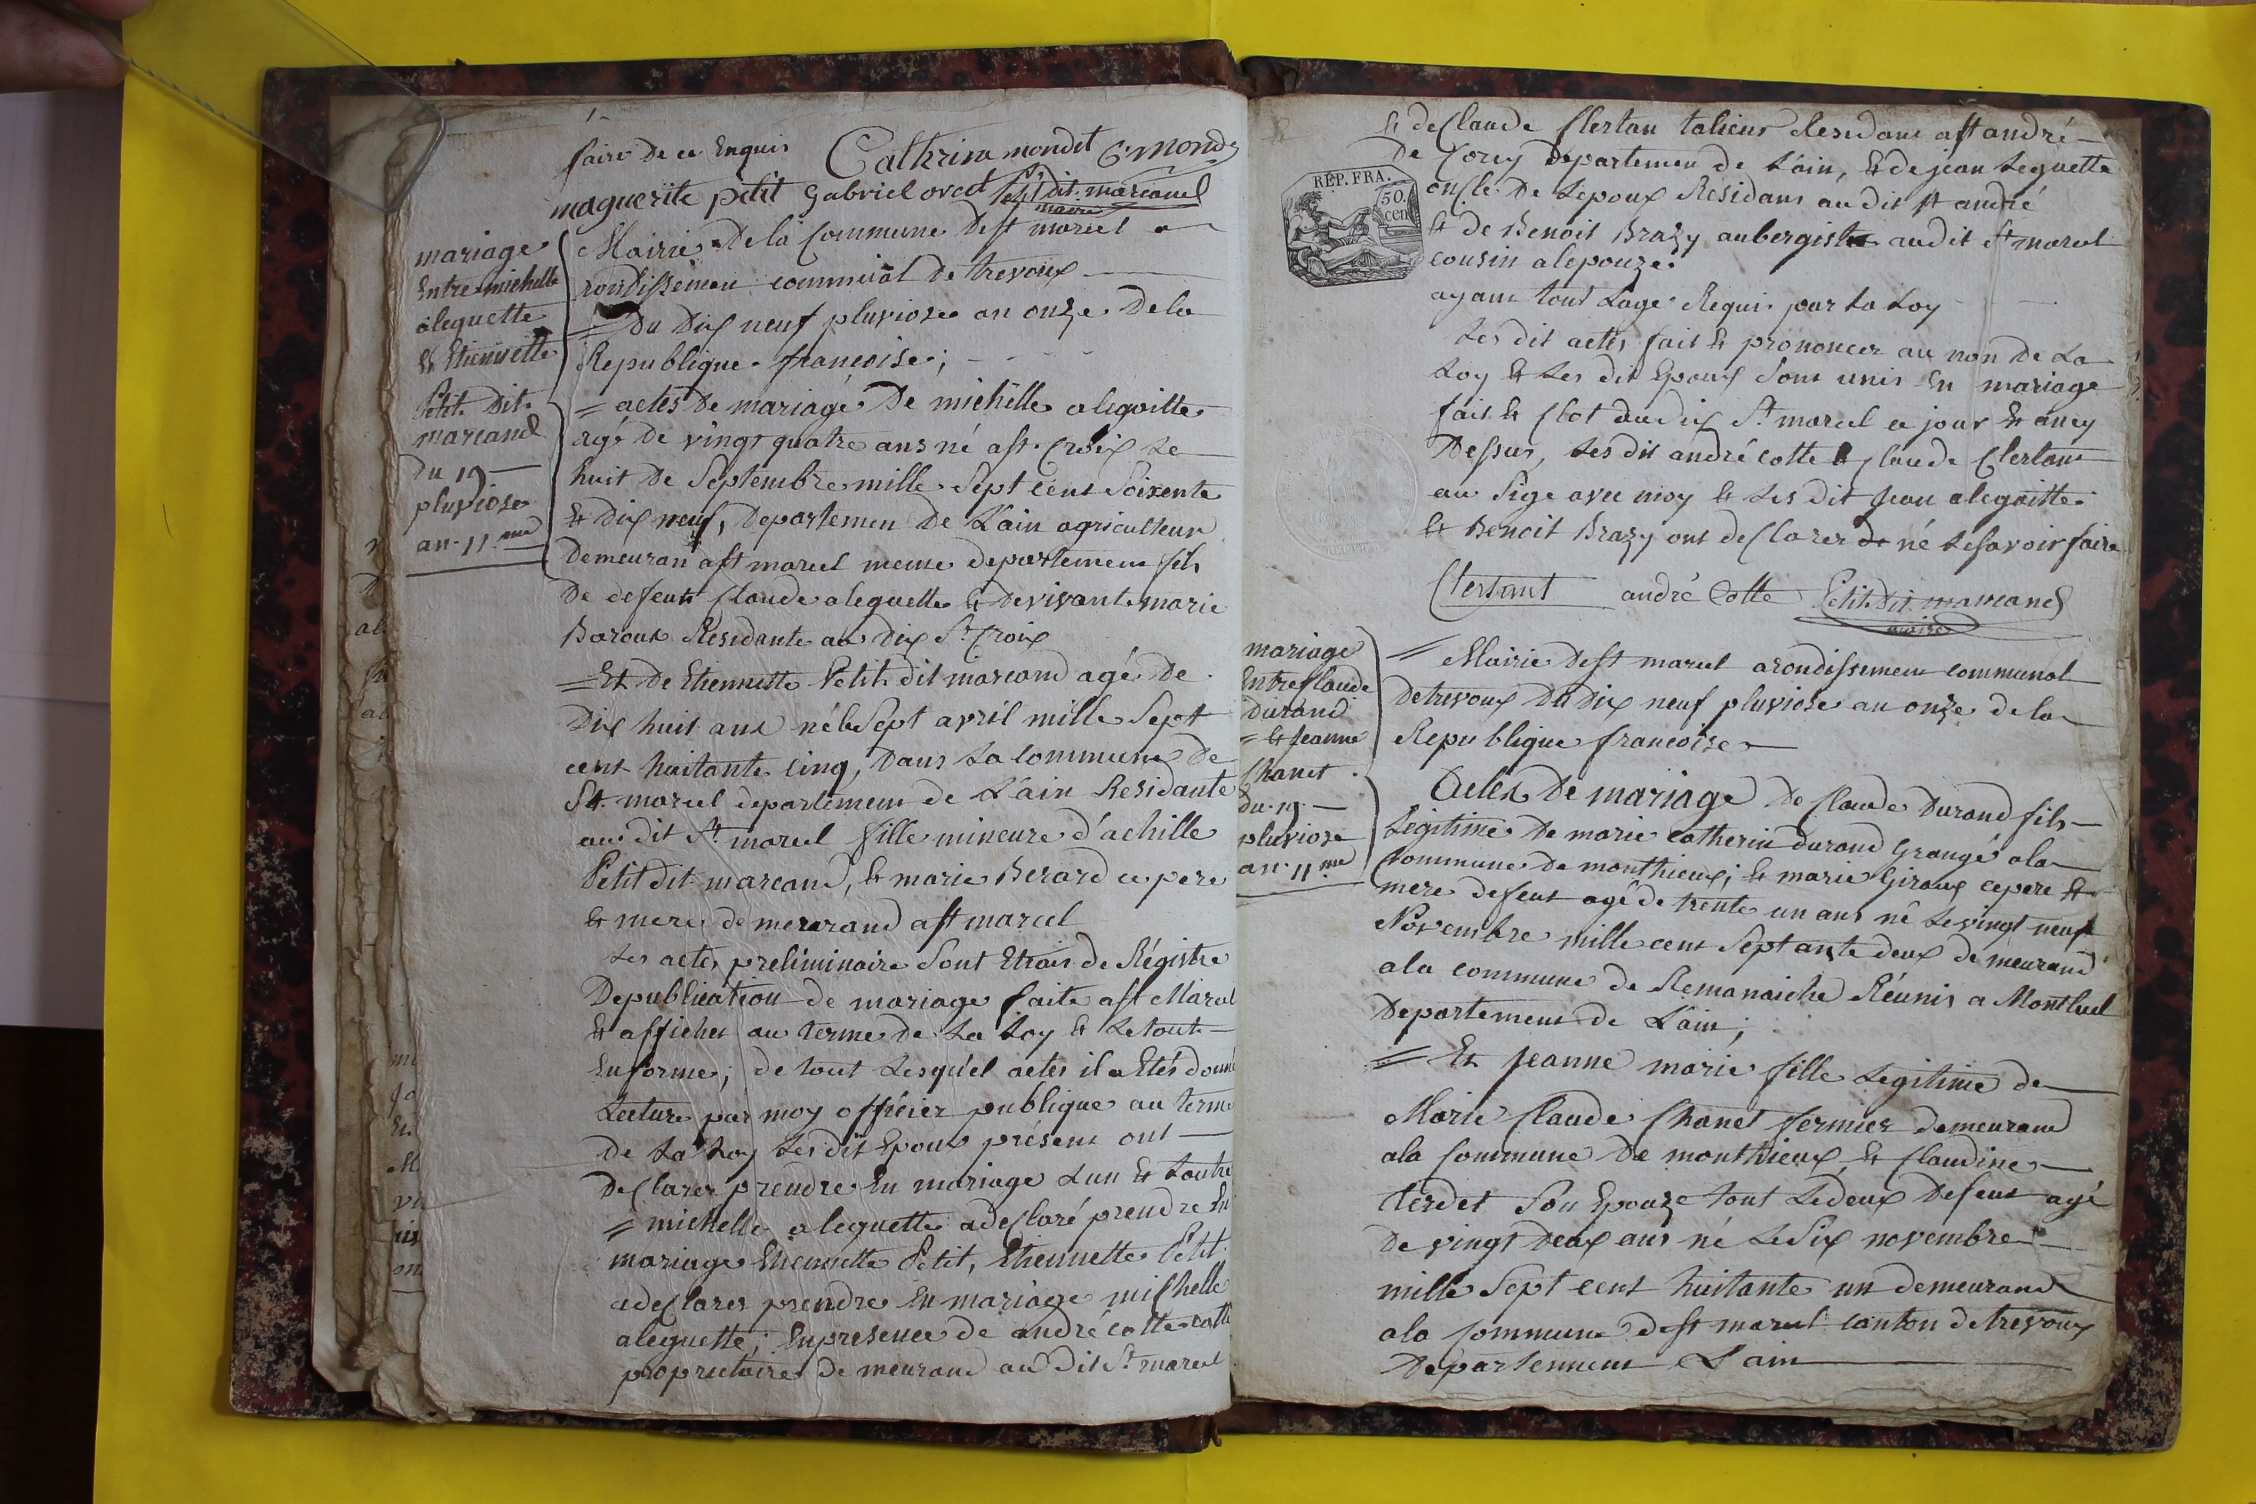 faire De ce Enquis Cathrina mondet C. mond
maguerite petit gabriel ovet petit dit marcand
maire
mariage
Entre michelle
aleguette
Et Etiennette
Petit Dit
marcand
Du 19
pluviose
an 11.me
Mairie De la Commune De st marcel a
rondissemen communal De trevoux
= Du Dix neuf pluviose an onze De la
Republique francoise;
= actes De mariage De michelle aleguitte
agé de vingt quatre ans né a st. Croix Le
huit De Septembre mille Sept cent Soixente
Et Dix neuf, Departemen De L'ain agriculteur
Demeuran a st marcel meme departemen fils
De defeunt Claude aleguette & De vivante marie
Baroux Residante au Dix St. Croix
= Et De Etiennette Petit dit marcand agé De
Dix huit ans né le Sept avril mille Sept
cent huitante cinq, Dans La Commune De
St. marcel departemen de L'ain Residante
au dit St. marcel fille mineure d'achille
Petit dit marcand, & marie Berard ce pere
& mere demeurand a st marcel
Les actes preliminaire Sont Etrais de Régistre
De publication de mariage faite a st Marcel
& afficher au terme de La Loy & Le tout
En forme; de tout Lesquel actes il a Etés donné
Lecture par moy officier publique au terme
De La Loy Les dit Epoux présent ont
Declarer prendre En mariage L'un & Loutre
= michelle aleguette a declaré prendre En
mariage Etiennette Petit, Etiennette Petit
a declarer prendre En mariage michelle
aleguette; En presence de andré cotte cotte
proprietaire de meurand au Dit St. marcel
& de Claude Clertan talieur Residant a st andré
De Corcy Departemen de L'ain, & de jean Leguette
oncle De Lepoux Residans au dit st andré
& de Benoit Brazy aubergiste au dit st marcel
cousin a lepouze.
ayant tout Lage Requi par La Loy
REP. FRA.
50.
cen
Les dit actes fait & prononcer au non De La
Loy & Les dit Epoux Sont unis En mariage
fait & Clot au dix St. marcel ce jour & an cy
Dessus, Les dit andré cotte & Claude Clertant
au Sige avec moy & Les dit Jean aleguitte
& Benoit Brazy ont declarer de né Le savoir faire
Clertant andré Cotte Petit Dit marcand
maire
mariage
Entre Claude
Durand
= & Jeanne
Chanet
Du 19
pluviose
an 11.me
= Mairie De st marcel arondissement communal
De trevoux Du Dix neuf pluviose an onze de la
Republique francoise
Actes De mariage De Claude Durand fils
Legitime De marie catherin durand Grangé a la
Commune De monthieux; & marie Giroux ce pere &
mere defeut agé de trente un ans né Le vingt neuf
Novembre mille cent Septante deux demeurand
a la commune de Romanaiche Réunis a Montluel
Departement de L'ain;
= Et Jeanne marie fille Legitime de
Marie Claude Chanet fermier demeurand
a la Commune De monthieux, & Claudine
Terdet Son Epouze tout Le deux Defeut agé
De vingt Deux ans né Le Six novembre
mille Sept cent huitante un demeurand
a la Commune De st marcel canton de trevoux
Departement L'ain